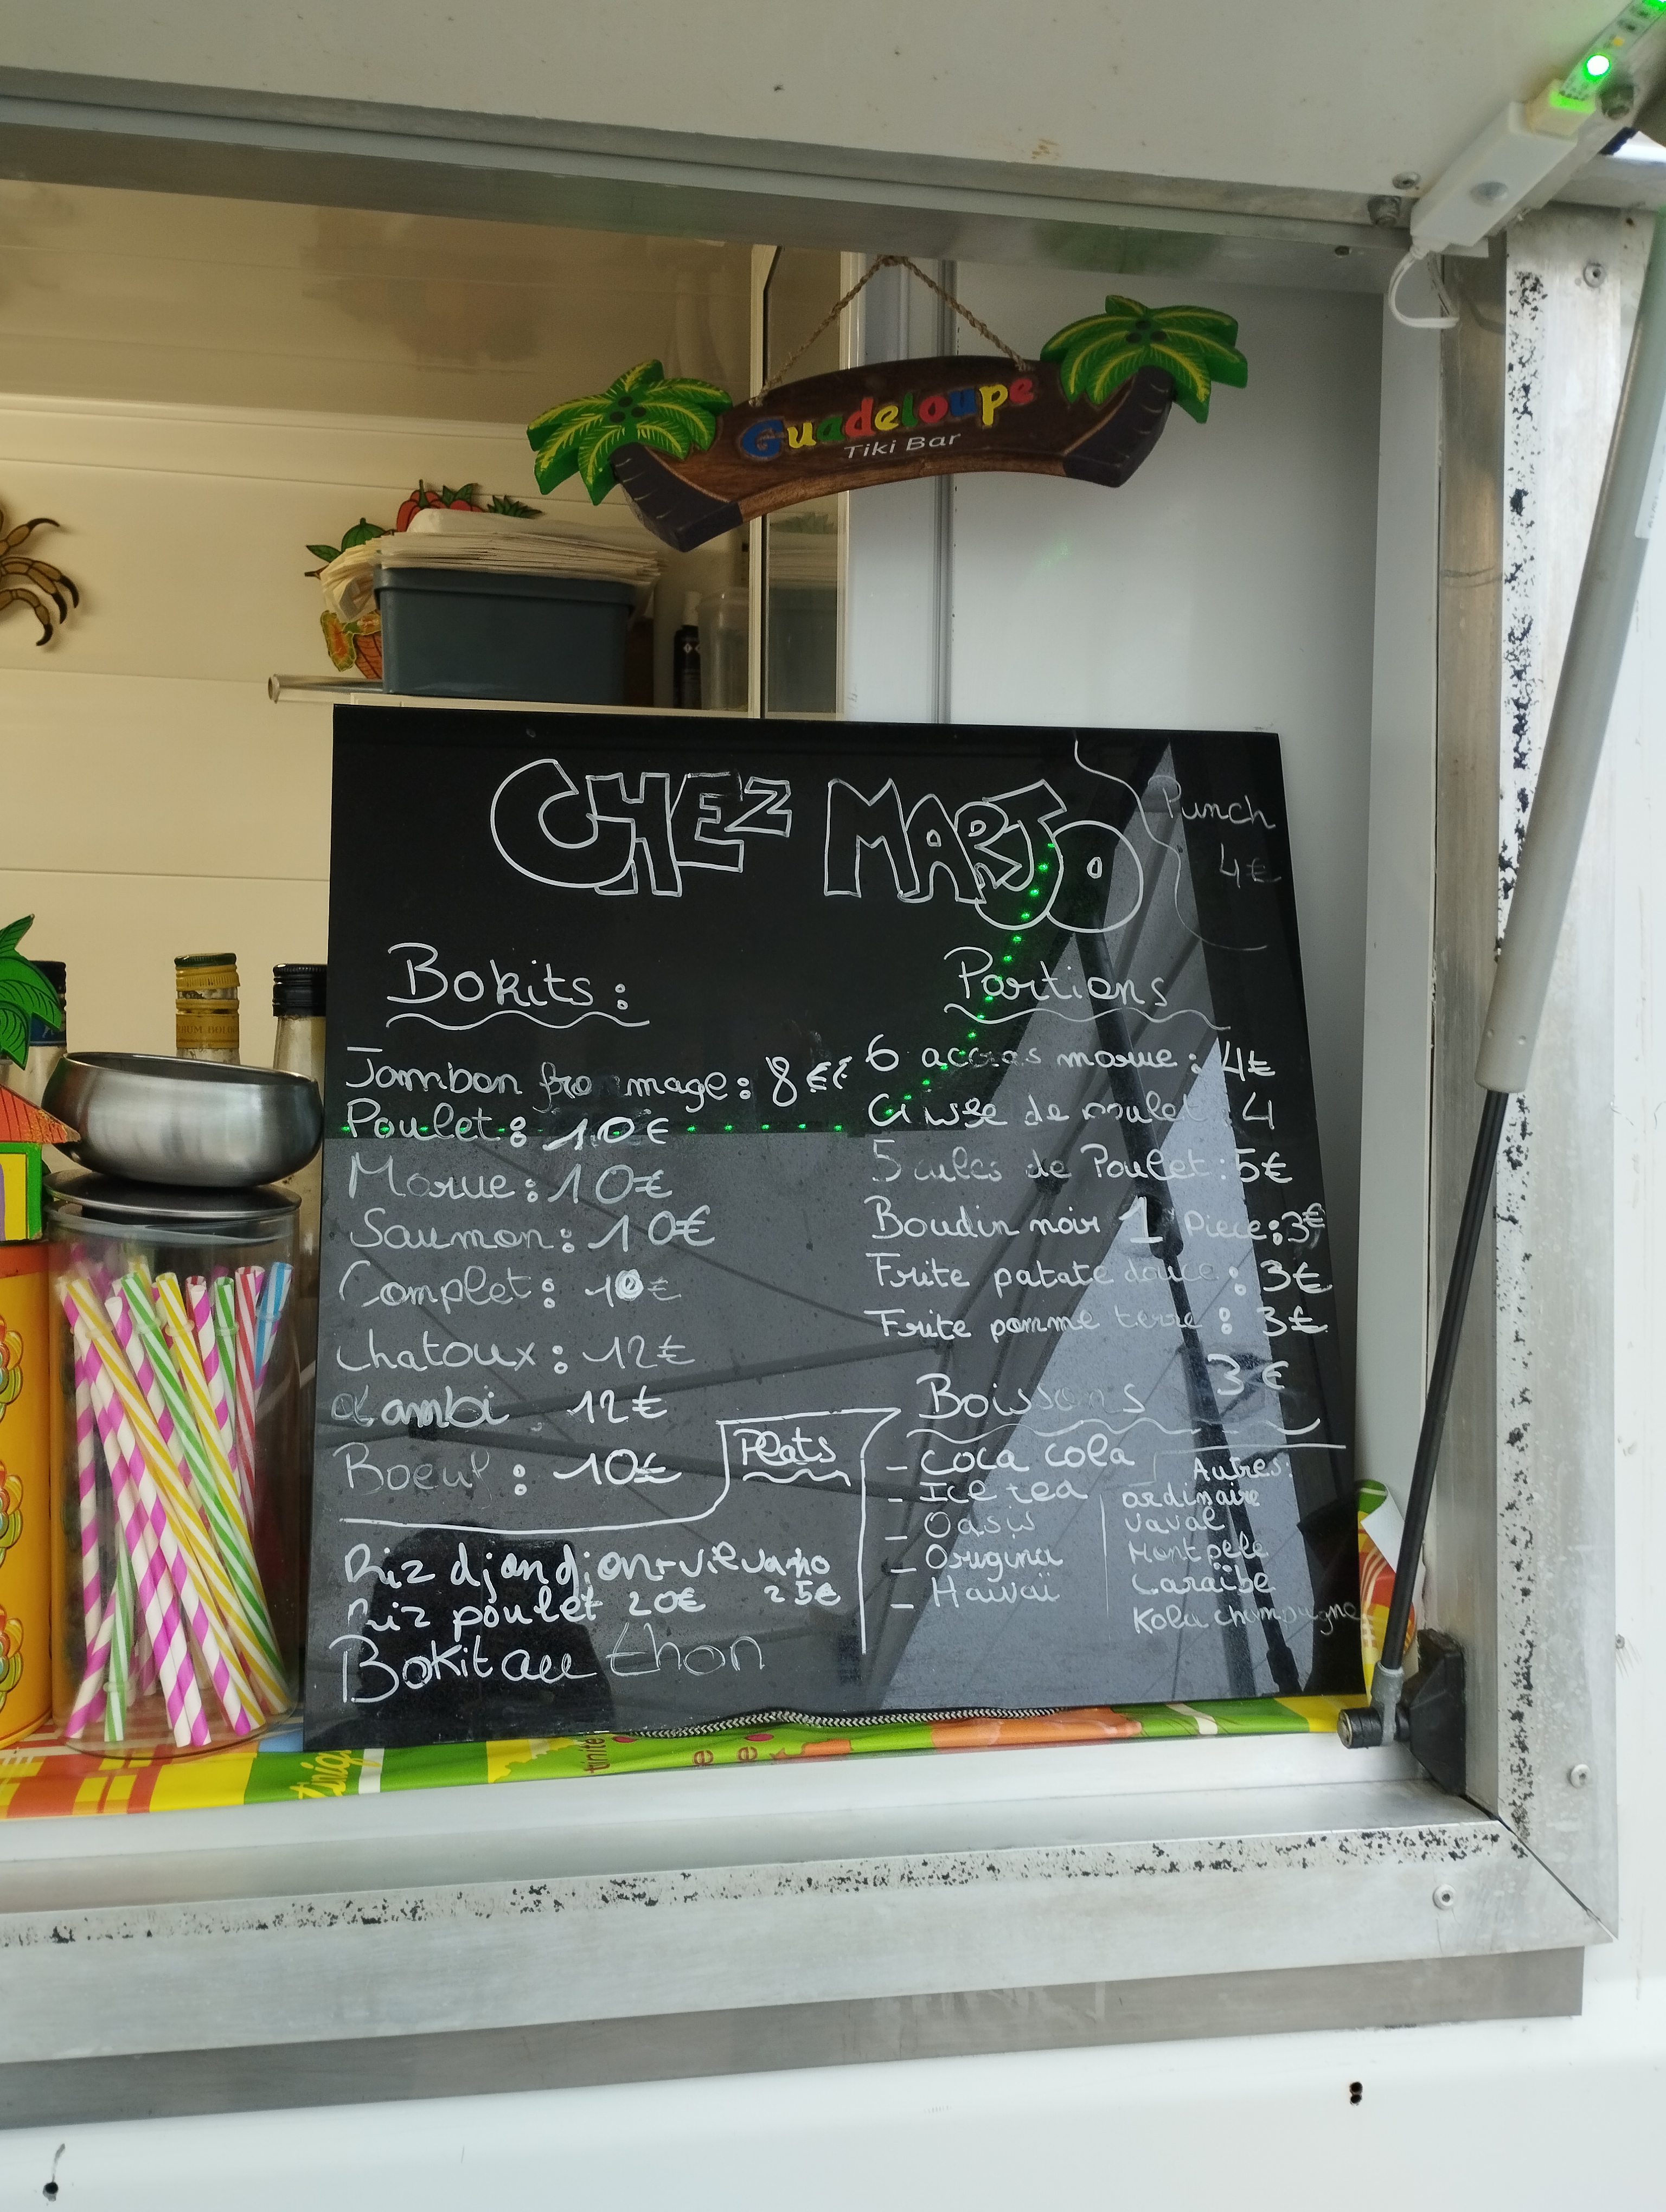 Guadeloupe
Tiki Bar
CHEZ MARJO
Punch
4€
Bokits :
Jambon fro mage : 8€
Poulet : 10€
Morue : 10€
Saumon : 10€
Complet : 10€
chatoux : 12€
Lambi 12€
Boeuf : 10€
Portions
6 accras morue : 4€
Cuisse de poulet : 4
5 ailes de Poulet : 5€
Boudin noir 1 Piece : 3€
Frite patate douce : 3€
Frite pomme terre : 3€
Plats
Riz djondjon
25€
Riz poulet 20€
Bokit au thon
Boissons 3€
- Coca cola
- Ice tea
- Oasis
- Orugina
- Hawaï
Autres :
ordinaire
vaval
Mont pele
Caraïbe
Kola champagne